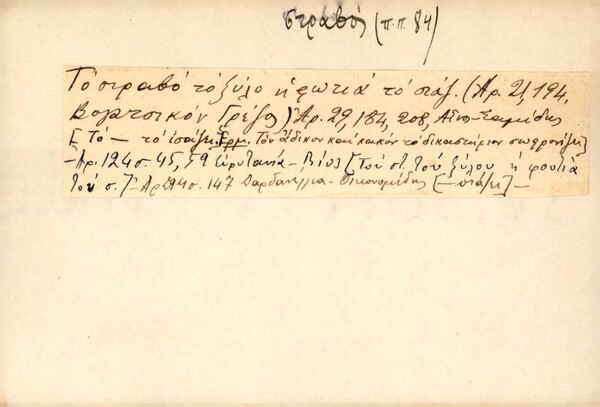 στραβός (π.π. 84)
Τό στραβό τό ξύλο ἡ φωτιά τό σιάζ. (Ἀρ. 21, 194,
Βογατσικόν Γρέζος) Ἀρ. 29, 184, 208, Αἶνο-Σαμίδης
[Τό — τό ἰσάζει. Ἑρμ. Τόν ἄδικον καί κακόν τό δικαστήριον σωφρονίζει]
-Ἀρ. 124 σ. 45, 59 Εὐρυτανία - [Τού στ. τού ξύλου ἡ φουτιά
τού σ.]- Ἀρ 294 σ. 147 Δαρδανέλλια - Οἰκονομίδης [— σιάζει] -